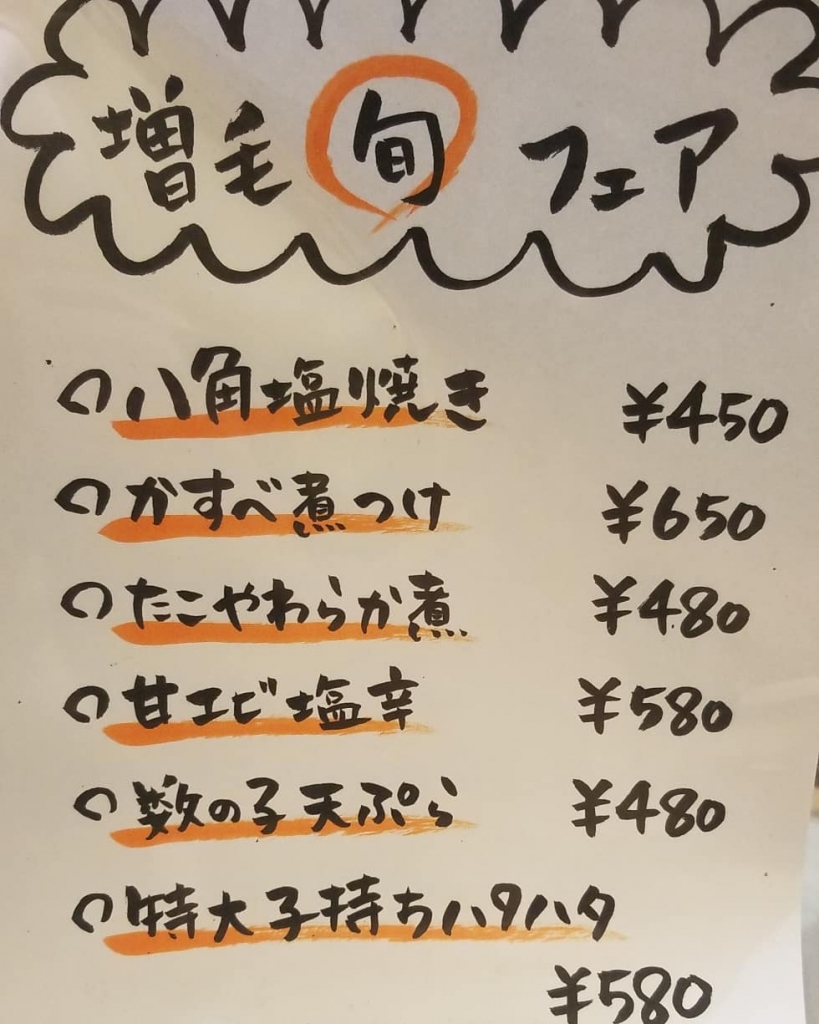 増毛旬フェア
○八角塩焼き ¥450
○かすべ煮つけ ¥650
○たこやわらか煮 ¥480
○甘エビ塩辛 ¥580
○数の子天ぷら ¥480
○特大子持ちハタハタ
¥580